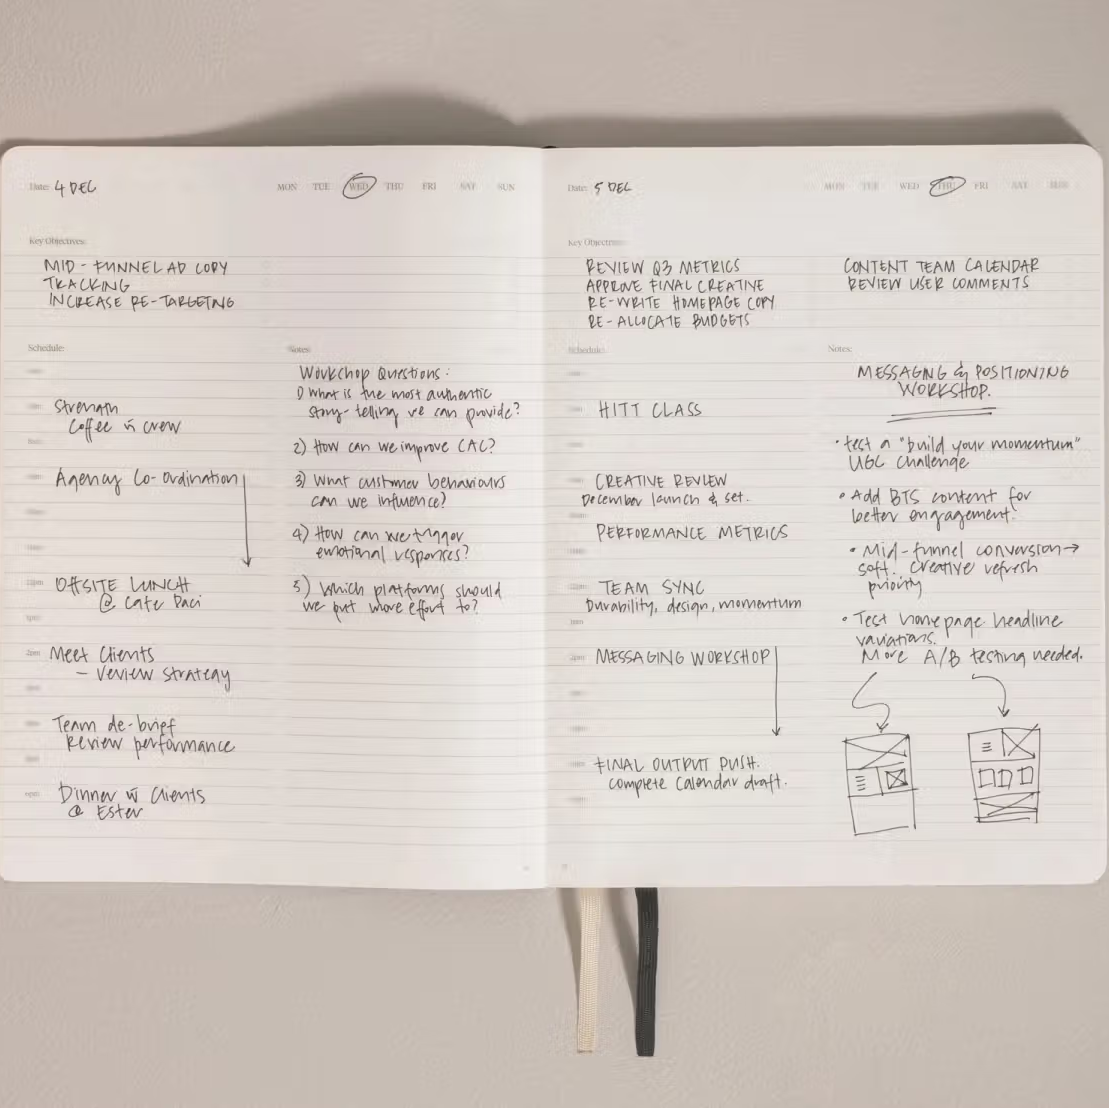 Date: 4 DEC
MON TUE WED THU FRI SAT SUN
Key Objectives:
MID - FUNNEL AD COPY
TRACKING
INCREASE RE-TARGETING
Schedule:
Strength
Coffee w crew
Agency Co-ordination
12pm OFFSITE LUNCH
@ Cafe Paci
1pm
2pm Meet Clients
- review strategy
Team de-brief
Review performance
Dinner w Clients
@ Ester
Notes:
Workshop Questions:
1) What is the most authentic
story-telling we can provide?
2) How can we improve CAC?
3) What customer behaviours
can we influence?
4) How can we trigger
emotional responses?
5) Which platforms should
we put more effort to?
Date: 5 DEC
MON TUE WED THU FRI SAT SUN
Key Objectives:
REVIEW Q3 METRICS
APPROVE FINAL CREATIVE
RE-WRITE HOMEPAGE COPY
RE-ALLOCATE BUDGETS
CONTENT TEAM CALENDAR
REVIEW USER COMMENTS
Schedule:
HITT CLASS
CREATIVE REVIEW
December launch & set.
PERFORMANCE METRICS
TEAM SYNC
Durability, design, momentum
1pm
2pm MESSAGING WORKSHOP
FINAL OUTPUT PUSH.
complete Calendar draft.
Notes:
MESSAGING & POSITIONING
WORKSHOP.
• test a "build your momentum"
UGC challenge
• Add BTS content for
better engagement.
• Mid-funnel conversion →
soft. Creative refresh
priority
• Test homepage headline
variations.
More A/B testing needed.